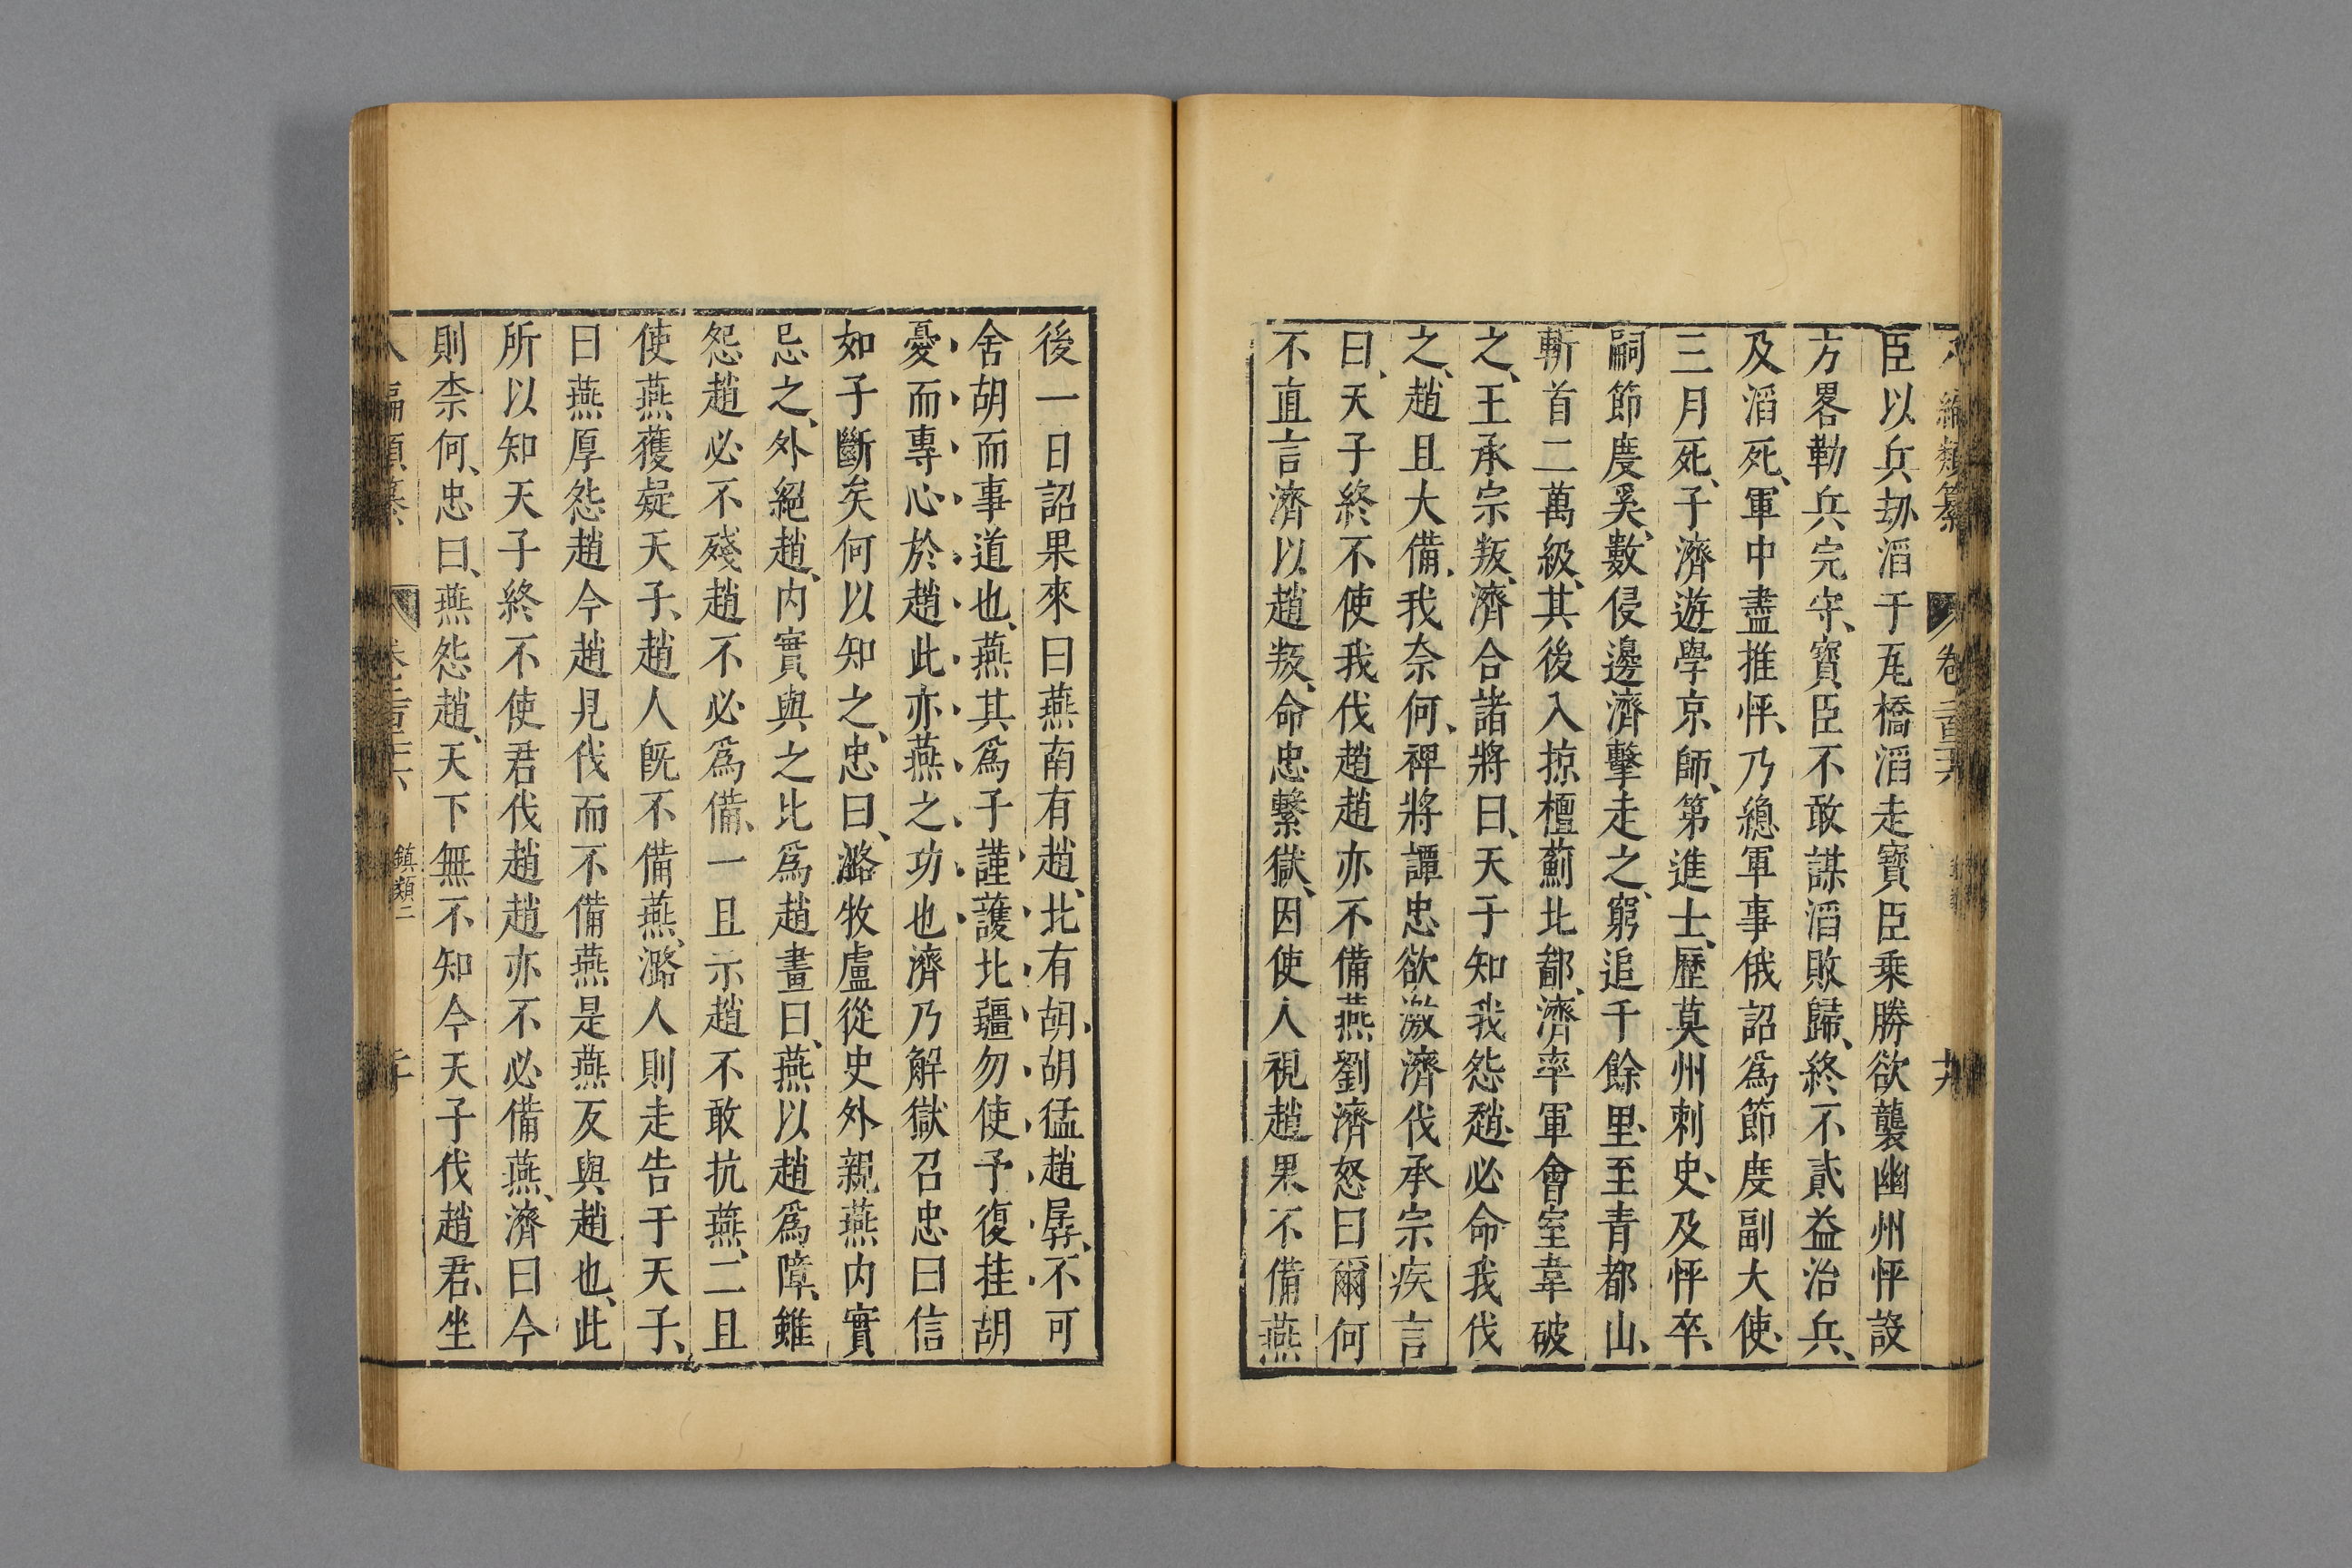 編類纂 卷二百三六 十九
臣以兵刼滔于瓦橋滔走寳臣乗勝欲襲幽州怦設
方畧勒兵完守、寳臣不敢謀滔敗歸、終不貳益治兵、
及滔死、軍中盡推怦、乃緫軍事俄詔爲節度副大使、
三月死、子濟遊學京師、第進士、歷莫州刺史、及怦卒、
嗣節度奚、數侵邊濟擊走之、窮追千餘里、至青都山、
斬首二萬級、其後入掠檀薊北鄙、濟率軍會室韋破
之、王承宗叛、濟合諸將曰、天子知我怨趙、必命我伐
之、趙且大備、我奈何、裨將譚忠欲激濟伐承宗疾言
曰、天子終不使我伐趙趙亦不備燕劉濟怒曰爾何
不直言濟以趙叛、命忠繫獄、因使人視趙果不備燕
後一日詔果來曰燕南有趙、北有胡、胡猛趙孱、不可
舍胡而事道也、燕其爲予謹護北疆勿使予復挂胡
憂而專心於趙此亦燕之功也濟乃解獄召忠曰信
如子斷矣何以知之、忠曰、潞牧盧從史外親燕内實
忌之、外絕趙、内實與之比爲趙畫曰、燕以趙爲障、雖
怨趙必不殘趙不必爲備、一且示趙不敢抗燕、二且
使燕獲疑天子、趙人旣不備燕、潞人則走告于天子、
曰燕厚怨趙今趙見伐而不備燕是燕反與趙也、此
所以知天子終不使君伐趙趙亦不必備燕、濟曰今
則柰何、忠曰、燕怨趙、天下無不知今天子伐趙君、坐
編類纂 鎮類二